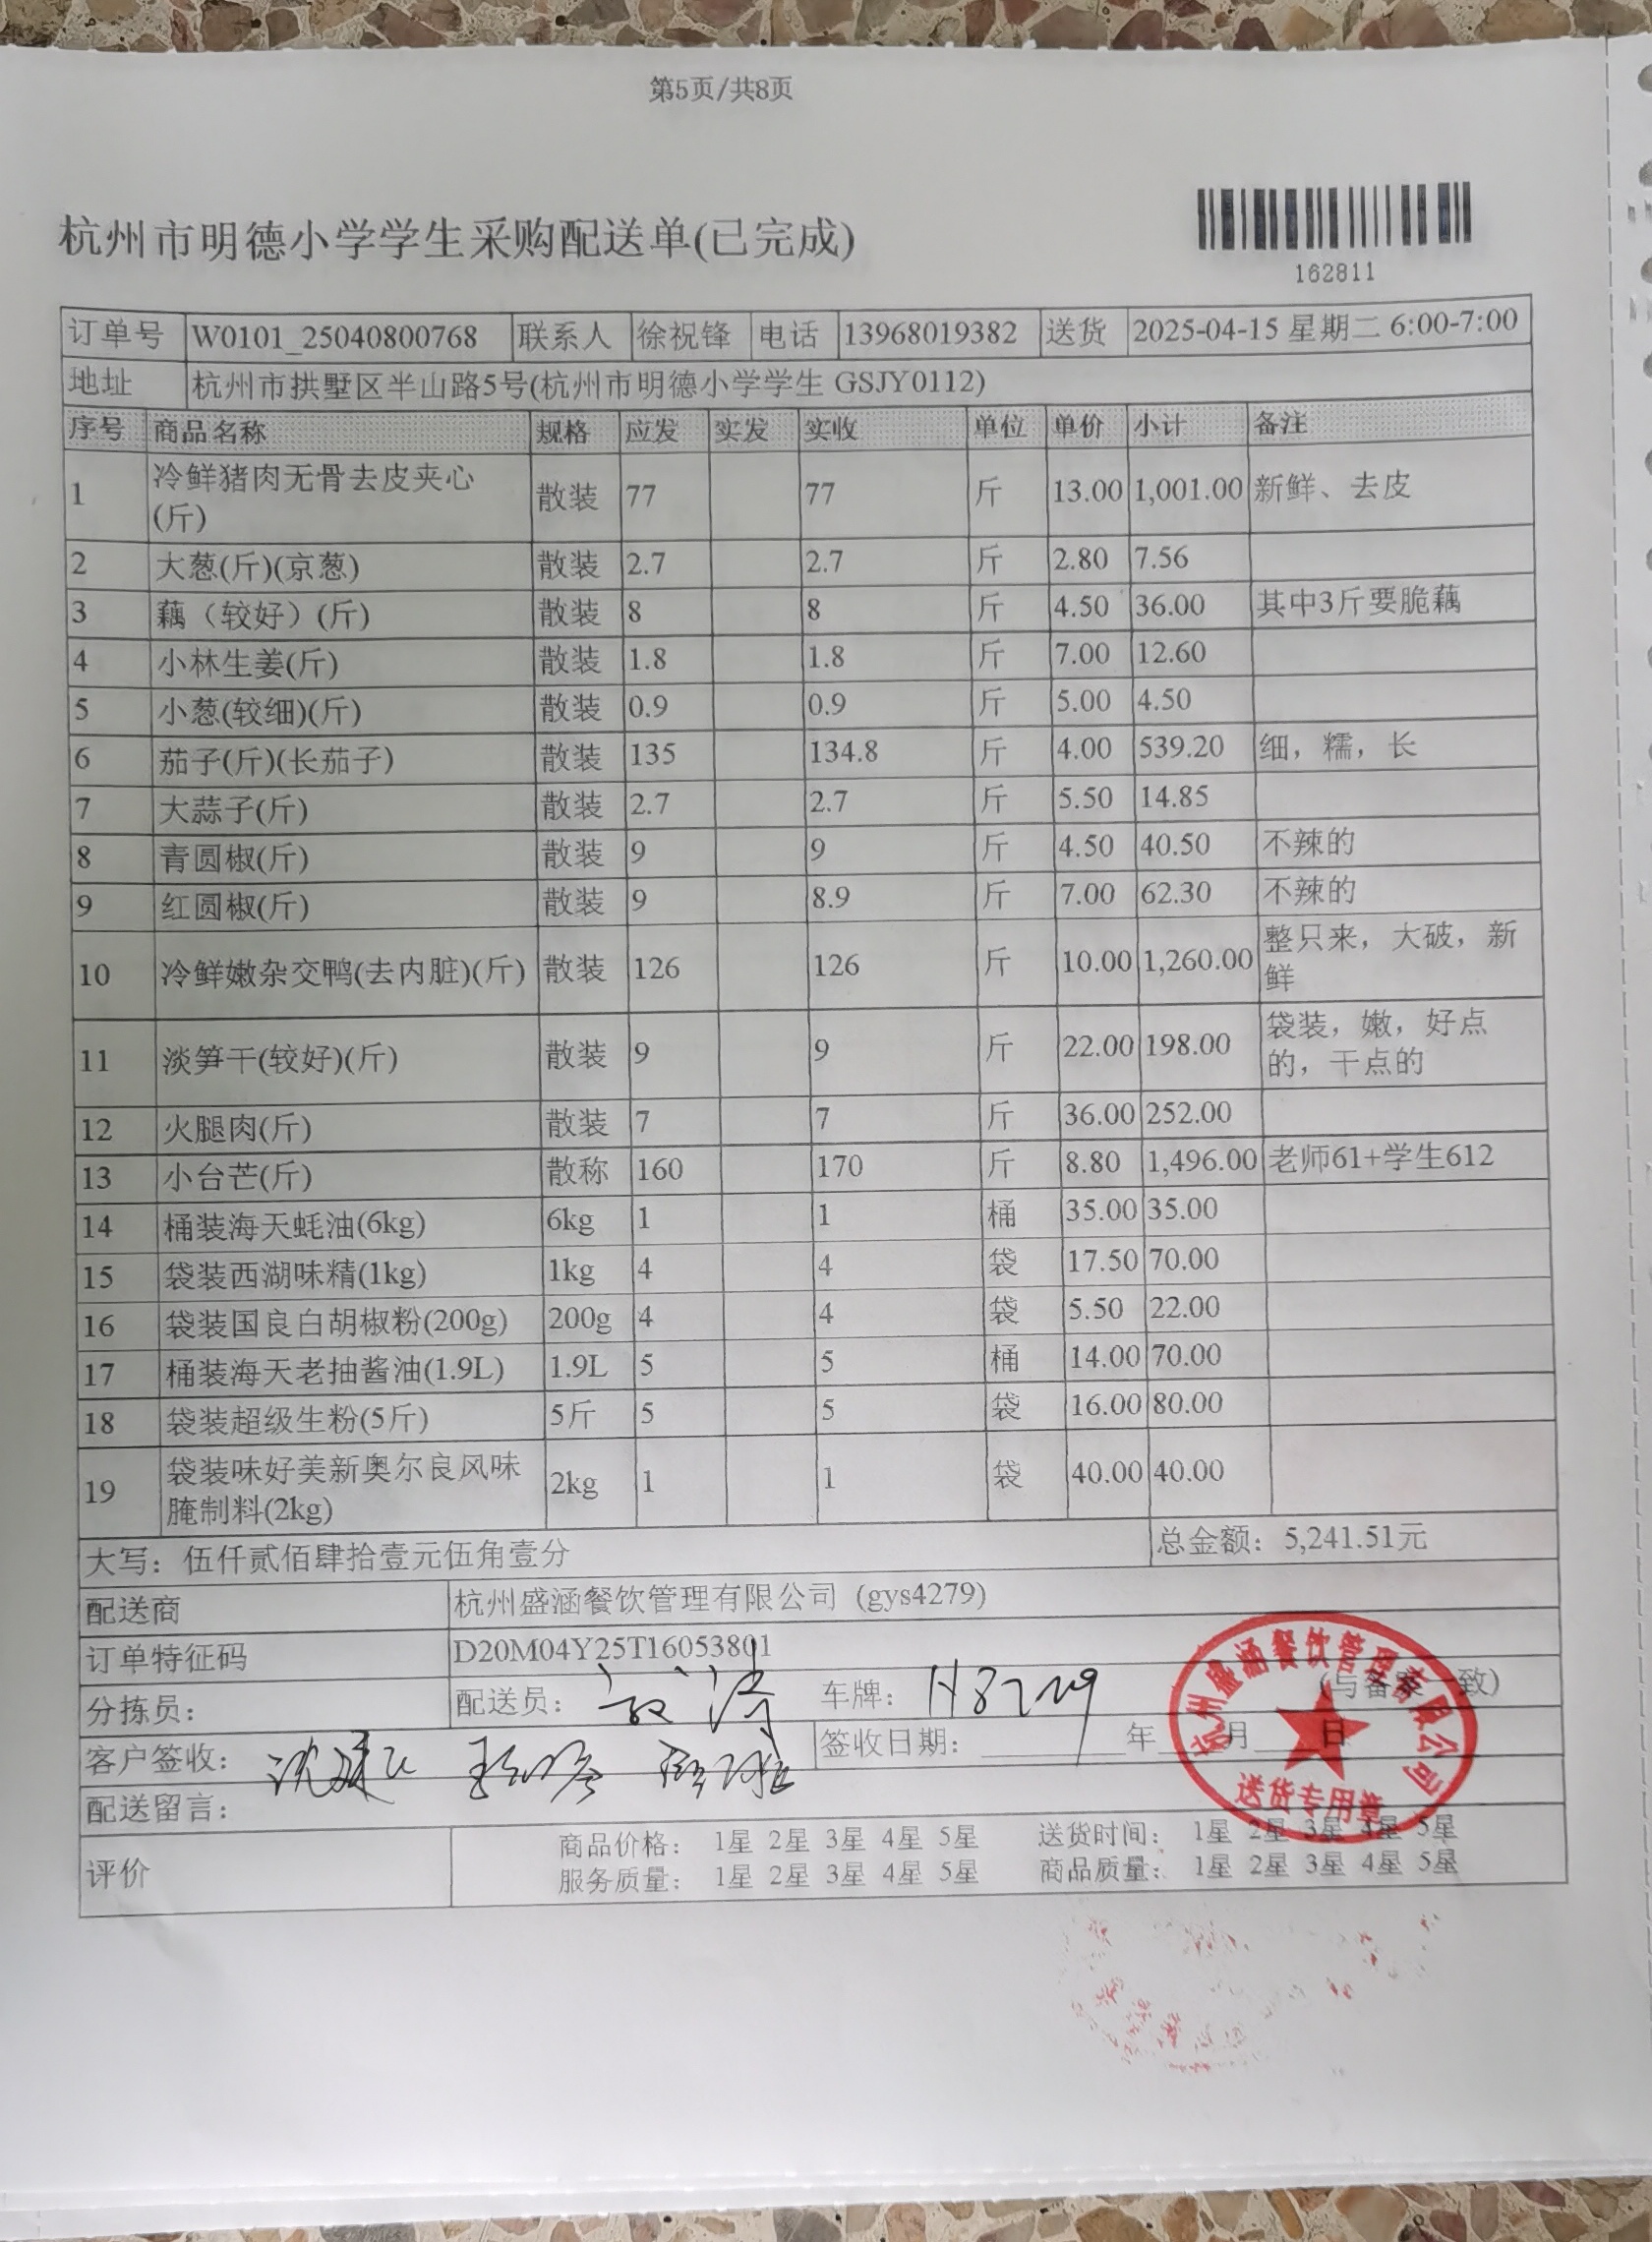 第5页/共8页
杭州市明德小学学生采购配送单(已完成)
162811
订单号 W0101_25040800768 联系人 徐祝锋 电话 13968019382 送货 2025-04-15 星期二 6:00-7:00
地址 杭州市拱墅区半山路5号(杭州市明德小学学生 GSJY0112)
序号 商品名称 规格 应发 实发 实收 单位 单价 小计 备注
1 冷鲜猪肉无骨去皮夹心(斤) 散装 77 77 斤 13.00 1,001.00 新鲜、去皮
2 大葱(斤)(京葱) 散装 2.7 2.7 斤 2.80 7.56
3 藕（较好）(斤) 散装 8 8 斤 4.50 36.00 其中3斤要脆藕
4 小林生姜(斤) 散装 1.8 1.8 斤 7.00 12.60
5 小葱(较细)(斤) 散装 0.9 0.9 斤 5.00 4.50
6 茄子(斤)(长茄子) 散装 135 134.8 斤 4.00 539.20 细，糯，长
7 大蒜子(斤) 散装 2.7 2.7 斤 5.50 14.85
8 青圆椒(斤) 散装 9 9 斤 4.50 40.50 不辣的
9 红圆椒(斤) 散装 9 8.9 斤 7.00 62.30 不辣的
10 冷鲜嫩杂交鸭(去内脏)(斤) 散装 126 126 斤 10.00 1,260.00 整只来，大破，新鲜
11 淡笋干(较好)(斤) 散装 9 9 斤 22.00 198.00 袋装，嫩，好点的，干点的
12 火腿肉(斤) 散装 7 7 斤 36.00 252.00
13 小台芒(斤) 散称 160 170 斤 8.80 1,496.00 老师61+学生612
14 桶装海天蚝油(6kg) 6kg 1 1 桶 35.00 35.00
15 袋装西湖味精(1kg) 1kg 4 4 袋 17.50 70.00
16 袋装国良白胡椒粉(200g) 200g 4 4 袋 5.50 22.00
17 桶装海天老抽酱油(1.9L) 1.9L 5 5 桶 14.00 70.00
18 袋装超级生粉(5斤) 5斤 5 5 袋 16.00 80.00
19 袋装味好美新奥尔良风味腌制料(2kg) 2kg 1 1 袋 40.00 40.00
大写：伍仟贰佰肆拾壹元伍角壹分 总金额：5,241.51元
配送商 杭州盛涵餐饮管理有限公司 (gys4279)
订单特征码 D20M04Y25T16053801
分拣员： 配送员： 车牌： (与备案一致)
客户签收： 签收日期： 年 月 日
配送留言：
评价 商品价格： 1星 2星 3星 4星 5星 送货时间： 1星 2星 3星 4星 5星
服务质量： 1星 2星 3星 4星 5星 商品质量： 1星 2星 3星 4星 5星
杭州盛涵餐饮管理有限公司
送货专用章